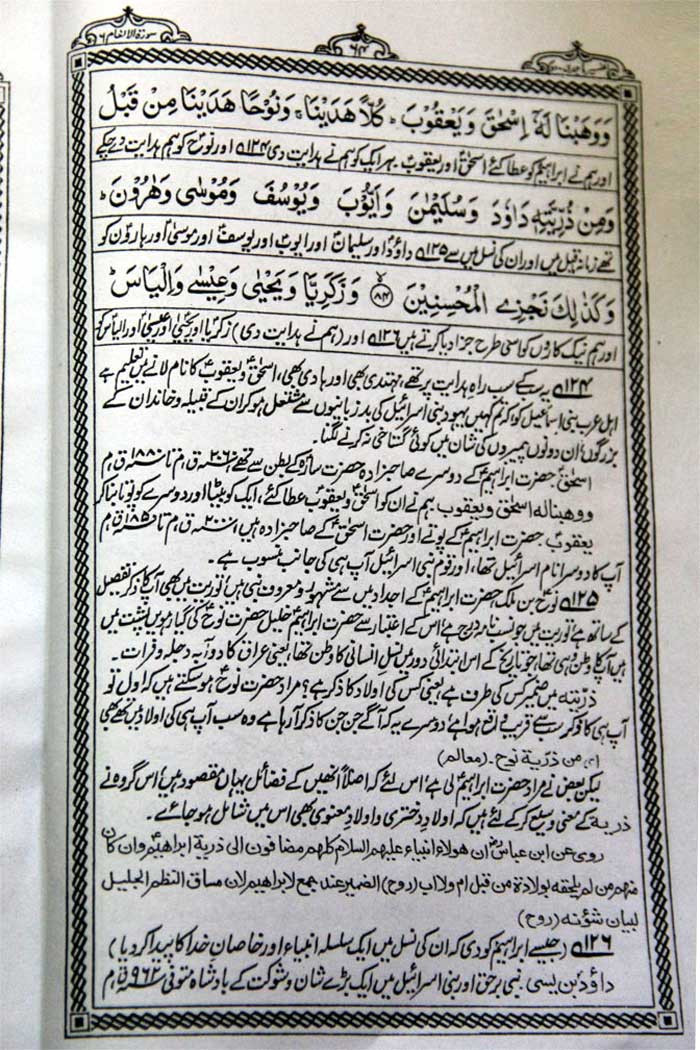 سورۃ الانعام ٦
٦٤
وَوَهَبْنَا لَهٗ اِسْحٰقَ وَيَعْقُوْبَ ؕ كُلًّا هَدَيْنَا ۚ وَنُوْحًا هَدَيْنَا مِنْ قَبْلُ
اور ہم نے ابراہیمؑ کو عطا کئے اسحٰقؑ اور یعقوبؑ ہر ایک کو ہم نے ہدایت دی ۱۲۴ اور نوحؑ کو ہم ہدایت دے چکے
وَمِنْ ذُرِّيَّتِهٖ دَاوٗدَ وَسُلَيْمٰنَ وَاَيُّوْبَ وَيُوْسُفَ وَمُوْسٰى وَهٰرُوْنَ ؕ
تھے زمانۂ قبل میں اور ان کی نسل میں سے ۱۲۵ داؤدؑ اور سلیمانؑ اور ایوبؑ اور یوسفؑ اور موسیٰؑ اور ہارونؑ کو
وَكَذٰلِكَ نَجْزِي الْمُحْسِنِيْنَ ﴿۸۴﴾ وَزَكَرِيَّا وَيَحْيٰى وَعِيْسٰى وَاِلْيَاسَ ؕ
اور ہم نیک کاروں کو اسی طرح جزا دیا کرتے ہیں ۱۲۶ اور (ہم نے ہدایت دی) زکریاؑ اور یحییٰؑ اور عیسیٰؑ اور الیاسؑ کو
۱۲۴ یہ سب کے سب راہِ ہدایت پر تھے، مہتدی بھی اور ہادی بھی، اسحٰقؑ و یعقوبؑ کا نام لانے میں تعلیم ہے
اہل عرب بنی اسماعیل کو کہ تم کہیں یہود بنی اسرائیل کی بدزبانیوں سے مشتعل ہو کر ان کے قبیلہ و خاندان کے
بزرگوں، ان دونوں پیمبروں کی شان میں کوئی گستاخی نہ کرنے لگنا۔
اسحٰقؑ حضرت ابراہیمؑ کے دوسرے صاحبزادہ حضرت سارہؑ کے بطن سے تھے ۲۰۶۰ ق م تا ۱۸۸۰ ق م
ووھبنا لہ اسحٰق ویعقوب ہم نے ان کو اسحٰقؑ و یعقوبؑ عطا کئے، ایک کو بیٹا اور دوسرے کو پوتا بنا کر
یعقوبؑ حضرت ابراہیمؑ کے پوتے اور حضرت اسحٰقؑ کے صاحبزادہ ہیں، ۲۰۰۰ ق م تا ۱۸۵۰ ق م
آپ کا دوسرا نام اسرائیل تھا، اور قوم بنی اسرائیل آپ ہی کی جانب منسوب ہے۔
۱۲۵ نوحؑ بن ملک حضرت ابراہیمؑ کے اجداد میں سے مشہور و معروف نبی ہیں، توریت میں بھی آپ کا ذکر تفصیل
کے ساتھ ہے، توریت میں جو نسب نامہ درج ہے، اس کے اعتبار سے حضرت ابراہیمؑ خلیل حضرت نوحؑ کی گیارہویں پشت میں
ہیں آپ کا وطن وہی تھا، جو تاریخ کے اس ابتدائی دور میں نسلِ انسانی کا وطن تھا، یعنی عراق کا دوآبہ دجلہ و فرات۔
ذرّیتہ میں ضمیر کس کی طرف ہے، یعنی کس کی اولاد کا ذکر ہے؟ مراد حضرت نوحؑ ہو سکتے ہیں کہ اول تو
آپ ہی کا ذکر سب سے قریب واقع ہوا ہے، دوسرے یہ کہ آگے جن جن کا ذکر آ رہا ہے وہ سب آپ ہی کی اولاد میں تھے بھی
ای من ذریۃ نوح۔ (معالم)
لیکن بعض نے مراد حضرت ابراہیمؑ لی ہے، اس لئے کہ اصلاً انھیں کے فضائل یہاں مقصود ہیں، اس گروہ نے
ذریۃ کے معنی وسیع کر کے لئے ہیں کہ اولادِ دختری و اولادِ معنوی بھی اس میں شامل ہو جائے۔
روی عن ابن عباسؓ ان ھولاء انبیاء علیھم السلام کلھم مضافون الی ذریۃ ابراھیمؑ وان کان
منھم من لم یلحقہ بولادۃ من قبل ام ولا اب (روح) الضمیر عند جمع لابراھیم لان مساق النظم الجلیل
لبیان شؤنہ (روح)
۱۲۶ (جیسے ابراہیمؑ کو دی کہ ان کی نسل میں ایک سلسلہ انبیاء اور خاصانِ خدا کا پیدا کر دیا)
داؤدؑ بن یسی۔ نبی برحق اور بنی اسرائیل میں ایک بڑے شان و شوکت کے بادشاہ متوفی ۹۶۲ ق م